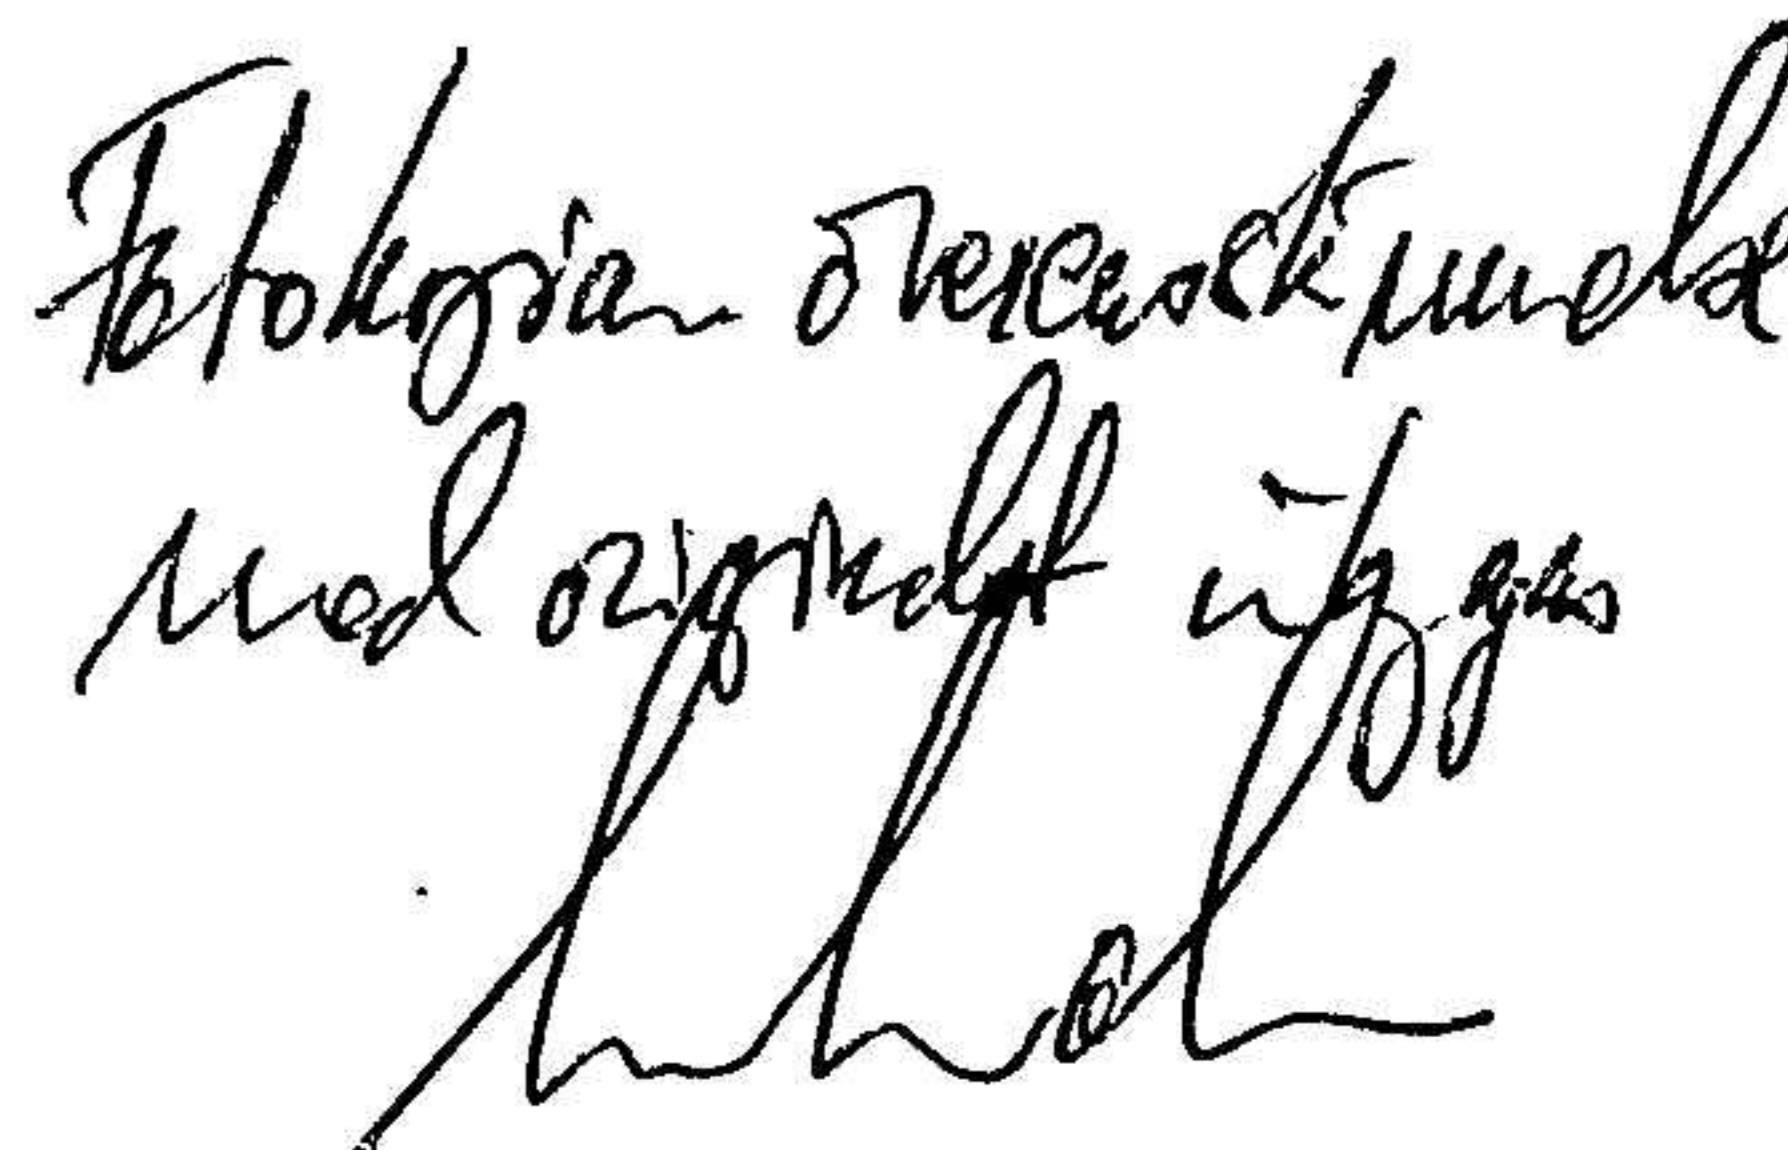 Fotokopian överensstämmelse
med originalet intygas